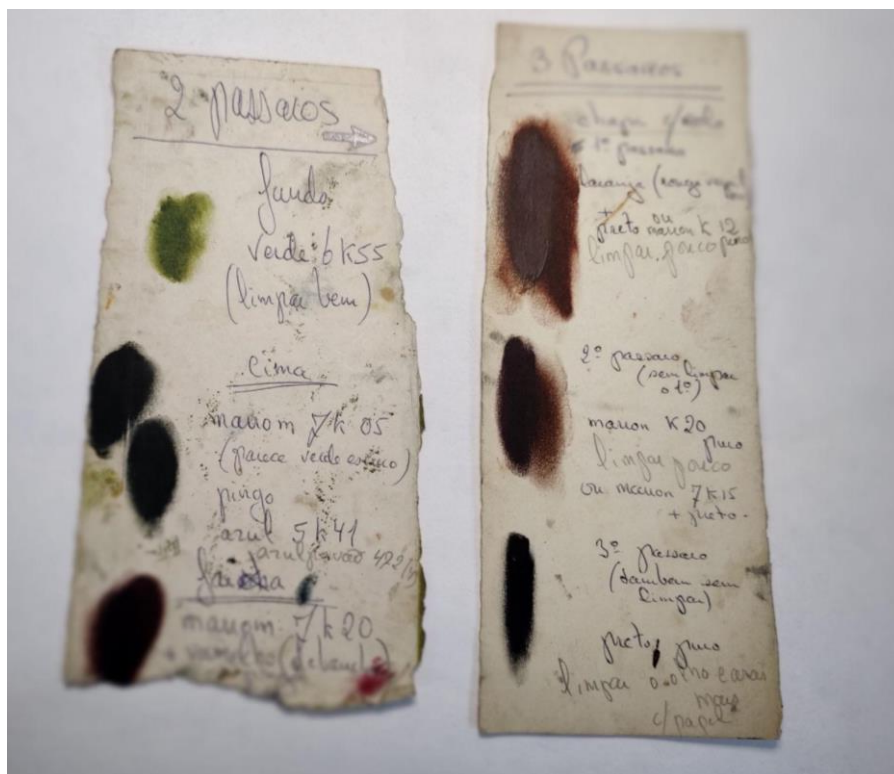 2 passaros
fundo
verde 6k55
(limpar bem)
cima
marrom 7k 05
(parece verde escuro)
pingo
azul 5k41
azul pavão 422
marrom 7k20
+ vermelho
3 Passaros
1º passaro
laranja
+ preto ou marron K 12
limpar pouco
2º passaro
(sem limpar
o 1º)
marron K20
puro
limpar pouco
ou marron 7K15
+ preto.
3º passaro
(tambem sem
limpar)
preto puro
limpar
mais
c/ papel